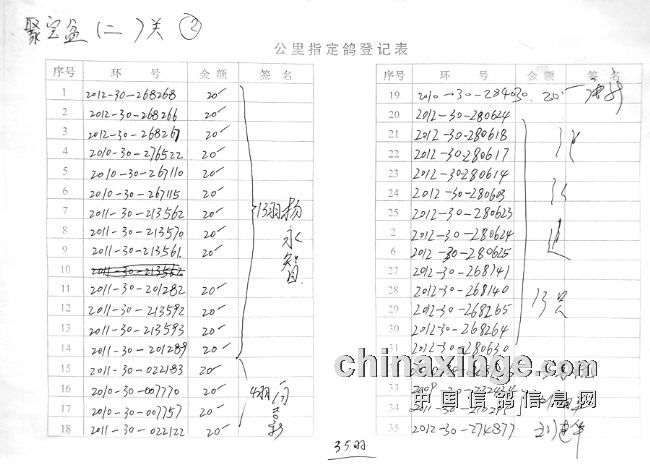 聚宝盆(二)关 ②
公里指定鸽登记表
序号 环 号 金额 签名
1 2012-30-268268 20
2 2012-30-268266 20
3 2012-30-268267 20
4 2010-30-276522 20
5 2010-30-267110 20
6 2010-30-267115 20
7 2011-30-213562 20
8 2011-30-213570 20
9 2011-30-213561 20
10
11 2011-30-201282 20
12 2011-30-213592 20
13 2011-30-213593 20
14 2011-30-201289 20
13羽 杨永智
15 2011-30-022183 20
16 2010-30-007770 20
17 2010-30-007757 20
18 2011-30-022122 20
4羽
序号 环 号 金额 签名
19 2010-30-284030 20
20 2012-30-280624
21 2012-30-280618
22 2012-30-280617
23 2012-30-280614
24 2012-30-280603
25 2012-30-280623
2 2012-30-280624
6 2012-30-280625
27 2012-30-268141
28 2012-30-268140
29 2012-30-268265
30 2012-30-268264
31 2012-30-280630
13只
33
35 2012-30-274877
35羽
chinaxinge.com
中国信鸽信息网